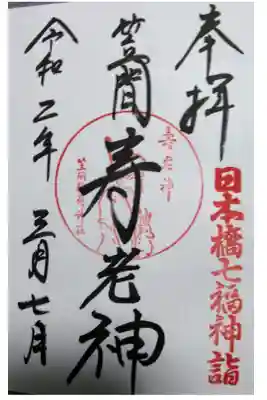 奉拝
日本橋七福神詣
笠間
寿老神
寿老神
笠間稲荷神社
令和二年 三月七日